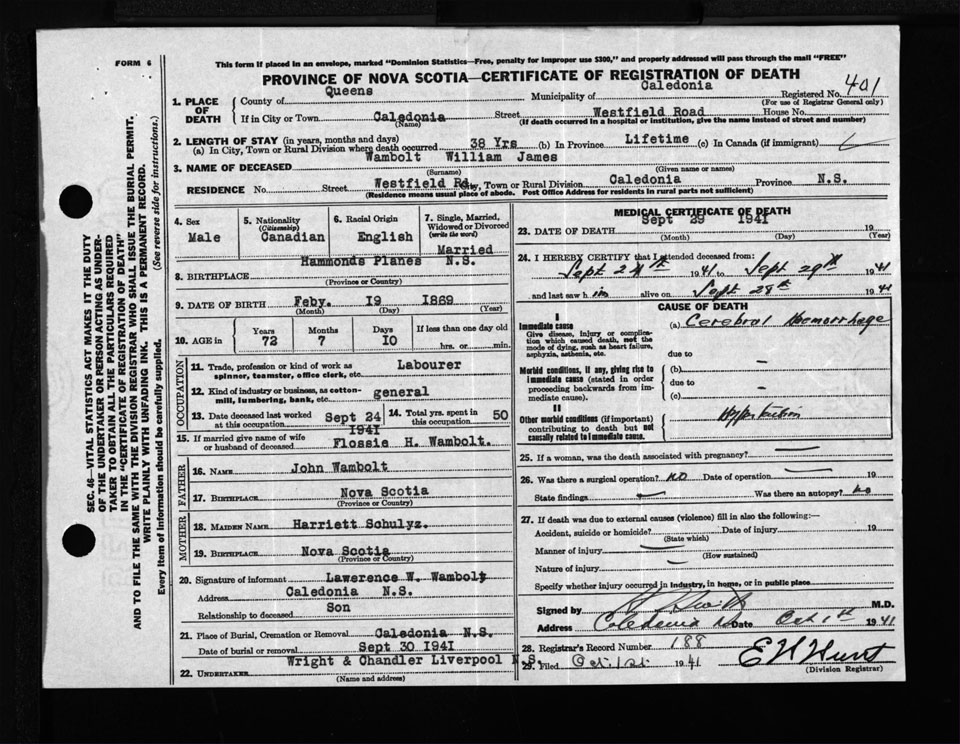 FORM 6
This form if placed in an envelope, marked "Dominion Statistics—Free, penalty for improper use $300," and properly addressed will pass through the mail "FREE"
PROVINCE OF NOVA SCOTIA—CERTIFICATE OF REGISTRATION OF DEATH
1. PLACE OF DEATH
County of Queens Municipality of Caledonia Registered No. 401
(For use of Registrar General only)
If in City or Town Caledonia Street Westfield Road House No.
(Name) (If death occurred in a hospital or institution, give the name instead of street and number)
2. LENGTH OF STAY (in years, months and days)
(a) In City, Town or Rural Division where death occurred 38 Yrs (b) In Province Lifetime (c) In Canada (if immigrant)
3. NAME OF DECEASED Wambolt William James
(Surname) (Given name or names)
RESIDENCE No. Street Westfield Rd. City, Town or Rural Division Caledonia Province N.S.
(Residence means usual place of abode. Post Office Address for residents in rural parts not sufficient)
SEC. 46—VITAL STATISTICS ACT MAKES IT THE DUTY
OF THE UNDERTAKER OR PERSON ACTING AS UNDER-
TAKER TO OBTAIN ALL THE PARTICULARS REQUIRED
IN THE "CERTIFICATE OF REGISTRATION OF DEATH"
AND TO FILE THE SAME WITH THE DIVISION REGISTRAR WHO SHALL ISSUE THE BURIAL PERMIT.
WRITE PLAINLY WITH UNFADING INK. THIS IS A PERMANENT RECORD.
Every item of Information should be carefully supplied. (See reverse side for instructions.)
4. Sex
Male
5. Nationality
(Citizenship)
Canadian
6. Racial Origin
English
7. Single, Married,
Widowed or Divorced
(write the word)
Married
8. BIRTHPLACE Hammonds Planes N.S.
(Province or Country)
9. DATE OF BIRTH Feby. 19 1869
(Month) (Day) (Year)
10. AGE in Years Months Days If less than one day old
72 7 10 hrs. or min.
OCCUPATION
11. Trade, profession or kind of work as
spinner, teamster, office clerk, etc. Labourer
12. Kind of industry or business, as cotton-
mill, lumbering, bank, etc. general
13. Date deceased last worked
at this occupation Sept 24
1941
14. Total yrs. spent in
this occupation 50
15. If married give name of wife
or husband of deceased Flossie H. Wambolt.
FATHER
16. NAME John Wambolt
17. BIRTHPLACE Nova Scotia
(Province or Country)
MOTHER
18. MAIDEN NAME Harriett Schulyz.
19. BIRTHPLACE Nova Scotia
(Province or Country)
20. Signature of informant Lawerence W. Wambolt
Address Caledonia N.S.
Relationship to deceased Son
21. Place of Burial, Cremation or Removal Caledonia N.S.
Date of burial or removal Sept 30 1941
22. UNDERTAKER Wright & Chandler Liverpool N.S.
(Name and address)
MEDICAL CERTIFICATE OF DEATH
23. DATE OF DEATH Sept 29 1941 19
(Month) (Day) (Year)
24. I HEREBY CERTIFY that I attended deceased from:
Sept 1941 to Sept 29th 1941
and last saw h im alive on Sept 28th 1941
CAUSE OF DEATH
I
Immediate cause
Give disease, injury or complica-
tion which caused death, not the
mode of dying, such as heart failure,
asphyxia, asthenia, etc.
(a) Cerebral Haemorrhage
due to
Morbid conditions, if any, giving rise to
immediate cause (stated in order
proceeding backwards from im-
mediate cause).
(b)
due to
(c)
II
Other morbid conditions (if important)
contributing to death but not
causally related to immediate cause.
Hypertension
25. If a woman, was the death associated with pregnancy?
26. Was there a surgical operation? no Date of operation 19
State findings Was there an autopsy? no
27. If death was due to external causes (violence) fill in also the following:—
Accident, suicide or homicide? Date of injury 19
(State which)
Manner of injury
(How sustained)
Nature of injury
Specify whether injury occurred in industry, in home, or in public place
Signed by M.D.
Address Caledonia Date Oct 1st 1941
28. Registrar's Record Number 188
29. Filed Oct. 1st. 1941
(Division Registrar)